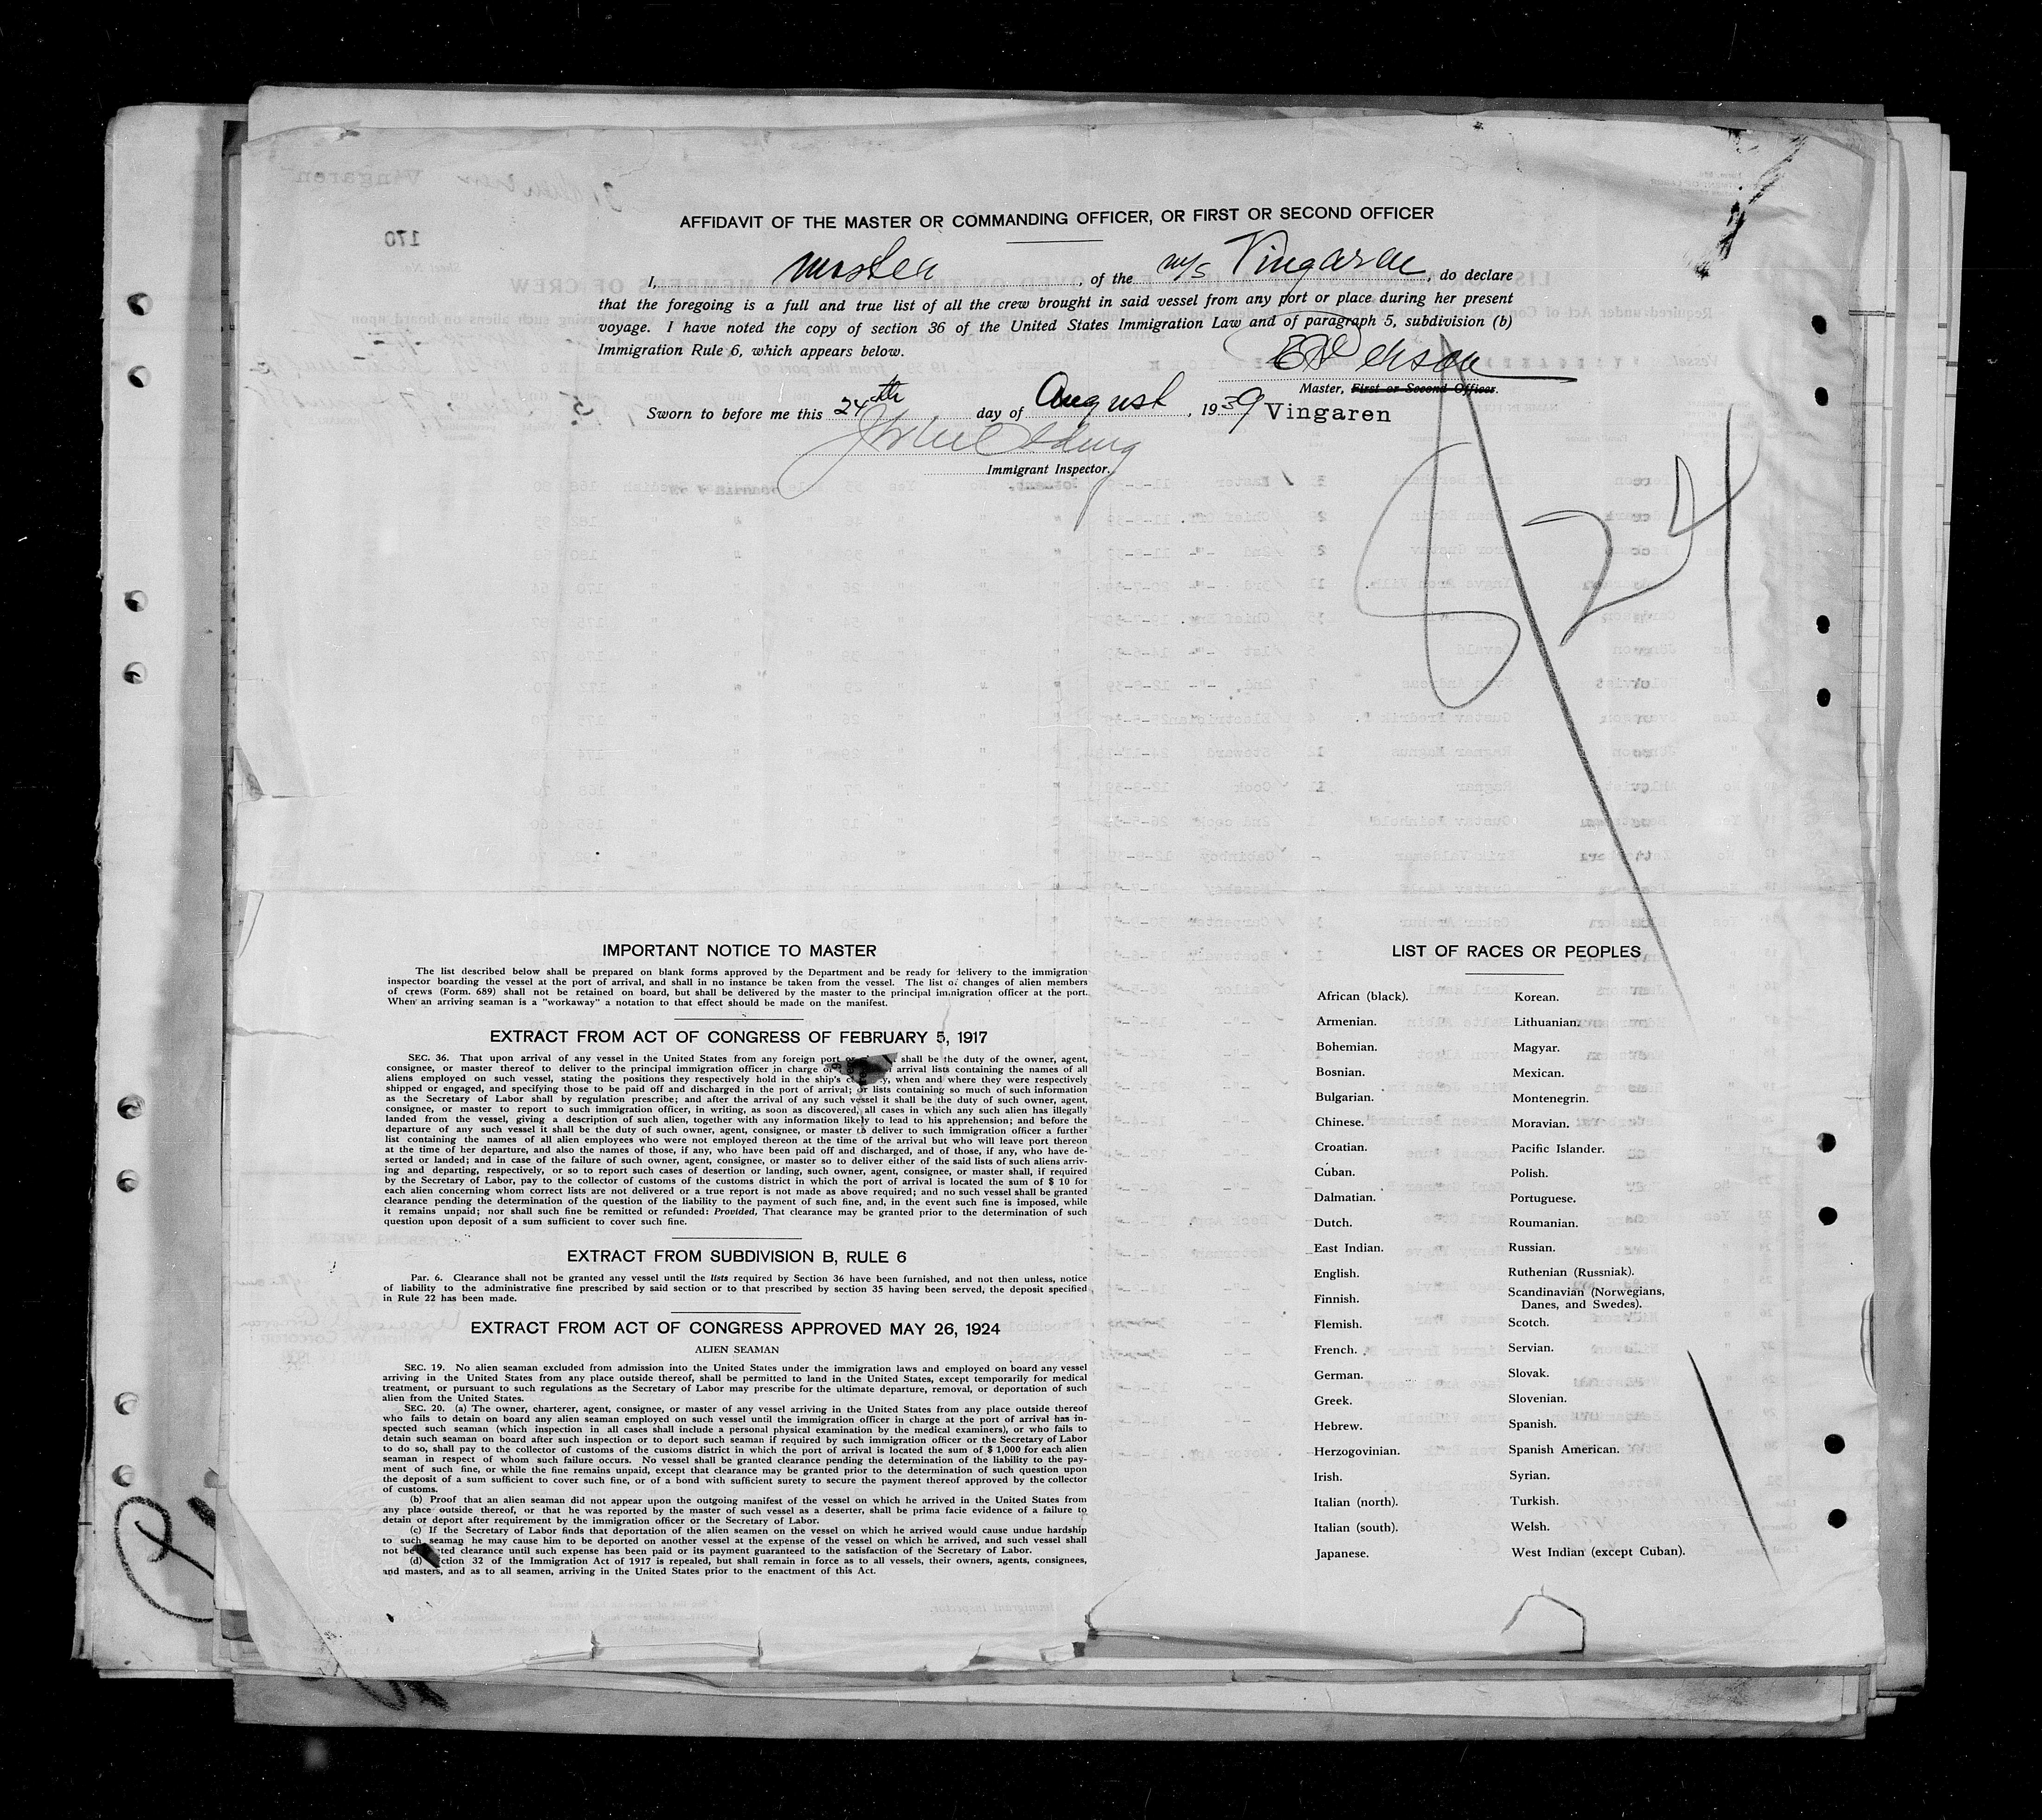 AFFIDAVIT OF THE MASTER OR COMMANDING OFFICER, OR FIRST OR SECOND OFFICER
I, master, of the m/s Vingaren, do declare
that the foregoing is a full and true list of all the crew brought in said vessel from any port or place during her present
voyage. I have noted the copy of section 36 of the United States Immigration Law and of paragraph 5, subdivision (b)
Immigration Rule 6, which appears below.
Master, First or Second Officer.
Sworn to before me this 24th day of August, 1939 Vingaren
Immigrant Inspector.
8/24
IMPORTANT NOTICE TO MASTER
The list described below shall be prepared on blank forms approved by the Department and be ready for delivery to the immigration
inspector boarding the vessel at the port of arrival, and shall in no instance be taken from the vessel. The list of changes of alien members
of crews (Form. 689) shall not be retained on board, but shall be delivered by the master to the principal immigration officer at the port.
When an arriving seaman is a "workaway" a notation to that effect should be made on the manifest.
EXTRACT FROM ACT OF CONGRESS OF FEBRUARY 5, 1917
SEC. 36. That upon arrival of any vessel in the United States from any foreign port or shall be the duty of the owner, agent,
consignee, or master thereof to deliver to the principal immigration officer in charge of arrival lists containing the names of all
aliens employed on such vessel, stating the positions they respectively hold in the ship's when and where they were respectively
shipped or engaged, and specifying those to be paid off and discharged in the port of arrival; or lists containing so much of such information
as the Secretary of Labor shall by regulation prescribe; and after the arrival of any such vessel it shall be the duty of such owner, agent,
consignee, or master to report to such immigration officer, in writing, as soon as discovered, all cases in which any such alien has illegally
landed from the vessel, giving a description of such alien, together with any information likely to lead to his apprehension; and before the
departure of any such vessel it shall be the duty of such owner, agent, consignee, or master to deliver to such immigration officer a further
list containing the names of all alien employees who were not employed thereon at the time of the arrival but who will leave port thereon
at the time of her departure, and also the names of those, if any, who have been paid off and discharged, and of those, if any, who have de-
serted or landed; and in case of the failure of such owner, agent, consignee, or master so to deliver either of the said lists of such aliens arriv-
ing and departing, respectively, or so to report such cases of desertion or landing, such owner, agent, consignee, or master shall, if required
by the Secretary of Labor, pay to the collector of customs of the customs district in which the port of arrival is located the sum of $ 10 for
each alien concerning whom correct lists are not delivered or a true report is not made as above required; and no such vessel shall be granted
clearance pending the determination of the question of the liability to the payment of such fine, and, in the event such fine is imposed, while
it remains unpaid; nor shall such fine be remitted or refunded: Provided, That clearance may be granted prior to the determination of such
question upon deposit of a sum sufficient to cover such fine.
EXTRACT FROM SUBDIVISION B, RULE 6
Par. 6. Clearance shall not be granted any vessel until the lists required by Section 36 have been furnished, and not then unless, notice
of liability to the administrative fine prescribed by said section or to that prescribed by section 35 having been served, the deposit specified
in Rule 22 has been made.
EXTRACT FROM ACT OF CONGRESS APPROVED MAY 26, 1924
ALIEN SEAMAN
SEC. 19. No alien seaman excluded from admission into the United States under the immigration laws and employed on board any vessel
arriving in the United States from any place outside thereof, shall be permitted to land in the United States, except temporarily for medical
treatment, or pursuant to such regulations as the Secretary of Labor may prescribe for the ultimate departure, removal, or deportation of such
alien from the United States.
SEC. 20. (a) The owner, charterer, agent, consignee, or master of any vessel arriving in the United States from any place outside thereof
who fails to detain on board any alien seaman employed on such vessel until the immigration officer in charge at the port of arrival has in-
spected such seaman (which inspection in all cases shall include a personal physical examination by the medical examiners), or who fails to
detain such seaman on board after such inspection or to deport such seaman if required by such immigration officer or the Secretary of Labor
to do so, shall pay to the collector of customs of the cusioms district in which the port of arrival is located the sum of $ 1,000 for each alien
seaman in respect of whom such failure occurs. No vessel shall be granted clearance pending the determination of the liability to the pay-
ment of such fine, or while the fine remains unpaid, except that clearance may be granted prior to the determination of such question upon
the deposit of a sum sufficient to cover such fine, or of a bond with sufficient surety to secure the payment thereof approved by the collector
of customs.
(b) Proof that an alien seaman did not appear upon the outgoing manifest of the vessel on which he arrived in the United States from
any place outside thereof, or that he was reported by the master of such vessel as a deserter, shall be prima facie evidence of a failure to
detain or deport after requirement by the immigration officer or the Secretary of Labor.
(c) If the Secretary of Labor finds that deportation of the alien seamen on the vessel on which he arrived would cause undue hardship
to such seaman he may cause him to be deported on another vessel at the expense of the vessel on which he arrived, and such vessel shall
not be clearance until such expense has been paid or its payment guaranteed to the satisfaction of the Secretary of Labor.
(d) ction 32 of the Immigration Act of 1917 is repealed, but shall remain in force as to all vessels, their owners, agents, consignees,
and masters, and as to all seamen, arriving in the United States prior to the enactment of this Act.
LIST OF RACES OR PEOPLES
African (black).
Armenian.
Bohemian.
Bosnian.
Bulgarian.
Chinese.
Croatian.
Cuban.
Dalmatian.
Dutch.
East Indian.
English.
Finnish.
Flemish.
French.
German.
Greek.
Hebrew.
Herzogovinian.
Irish.
Italian (north).
Italian (south).
Japanese.
Korean.
Lithuanian.
Magyar.
Mexican.
Montenegrin.
Moravian.
Pacific Islander.
Polish.
Portuguese.
Roumanian.
Russian.
Ruthenian (Russniak).
Scandinavian (Norwegians,
Danes, and Swedes).
Scotch.
Servian.
Slovak.
Slovenian.
Spanish.
Spanish American.
Syrian.
Turkish.
Welsh.
West Indian (except Cuban).